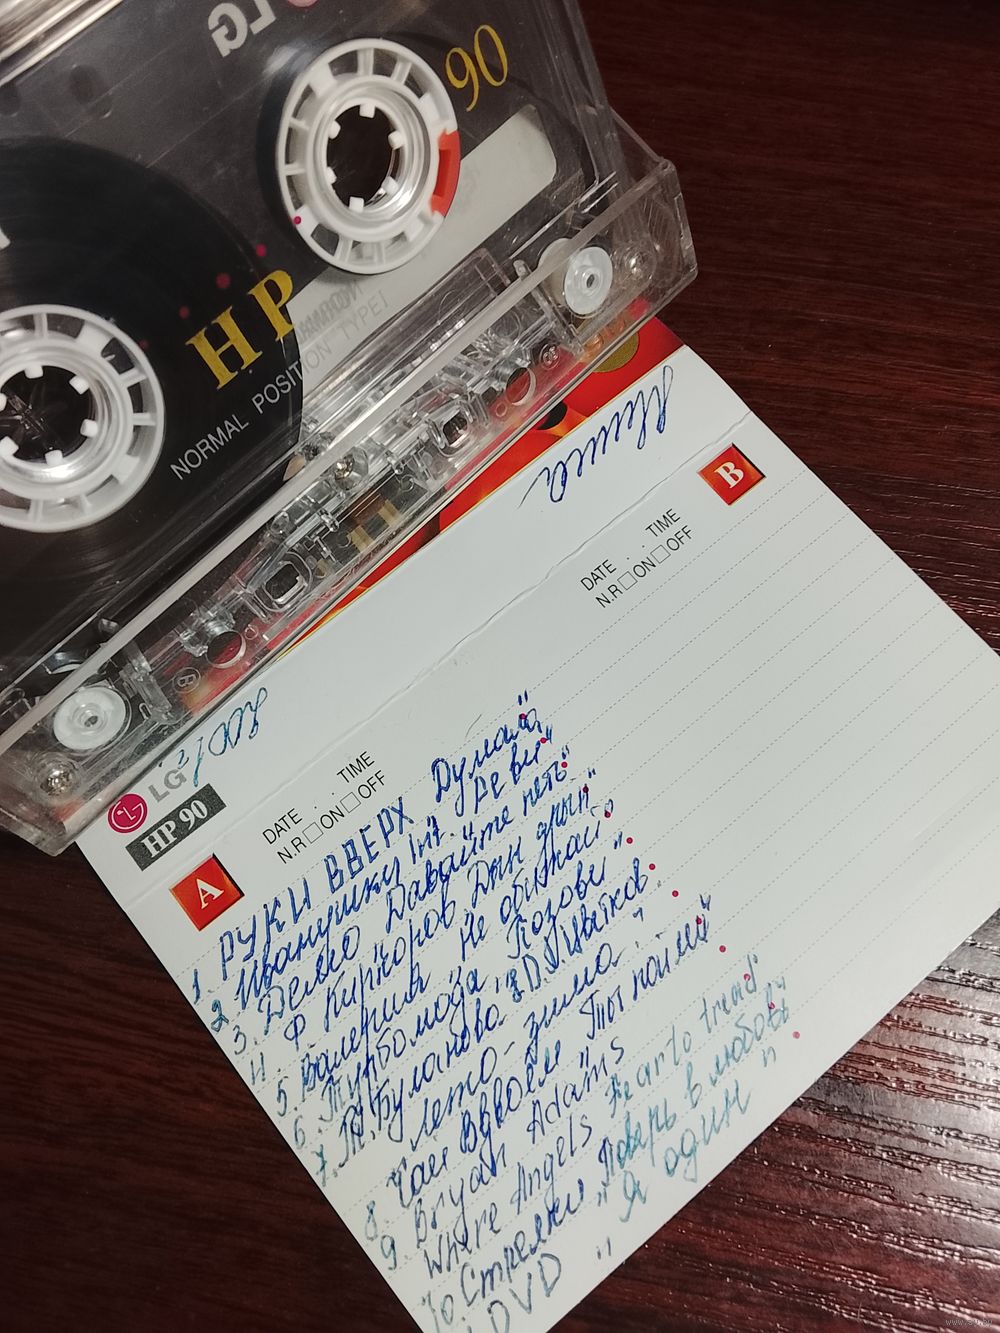 LG
90
HP
NORMAL POSITION TYPE I
LG
HP 90
A
DATE . . TIME
N.R □ ON □ OFF
B
DATE . . TIME
N.R □ ON □ OFF
1. РУКИ ВВЕРХ Думала"
2 Иванушки Int. Реви"
3. Демо Давайте петь"
4. Ф Киркоров Дын дрын"
5. Валерия Не обижай"
6. Турбомода, Позови"
7. Т. Буланова & DJ. Цветков
Лето-зима"
8. Чай вдвоём Ты пойми"
9. Bryan Adams
Where Angels Fear to tread"
10 Стрелки Поверь в любовь
DVD " Я один "